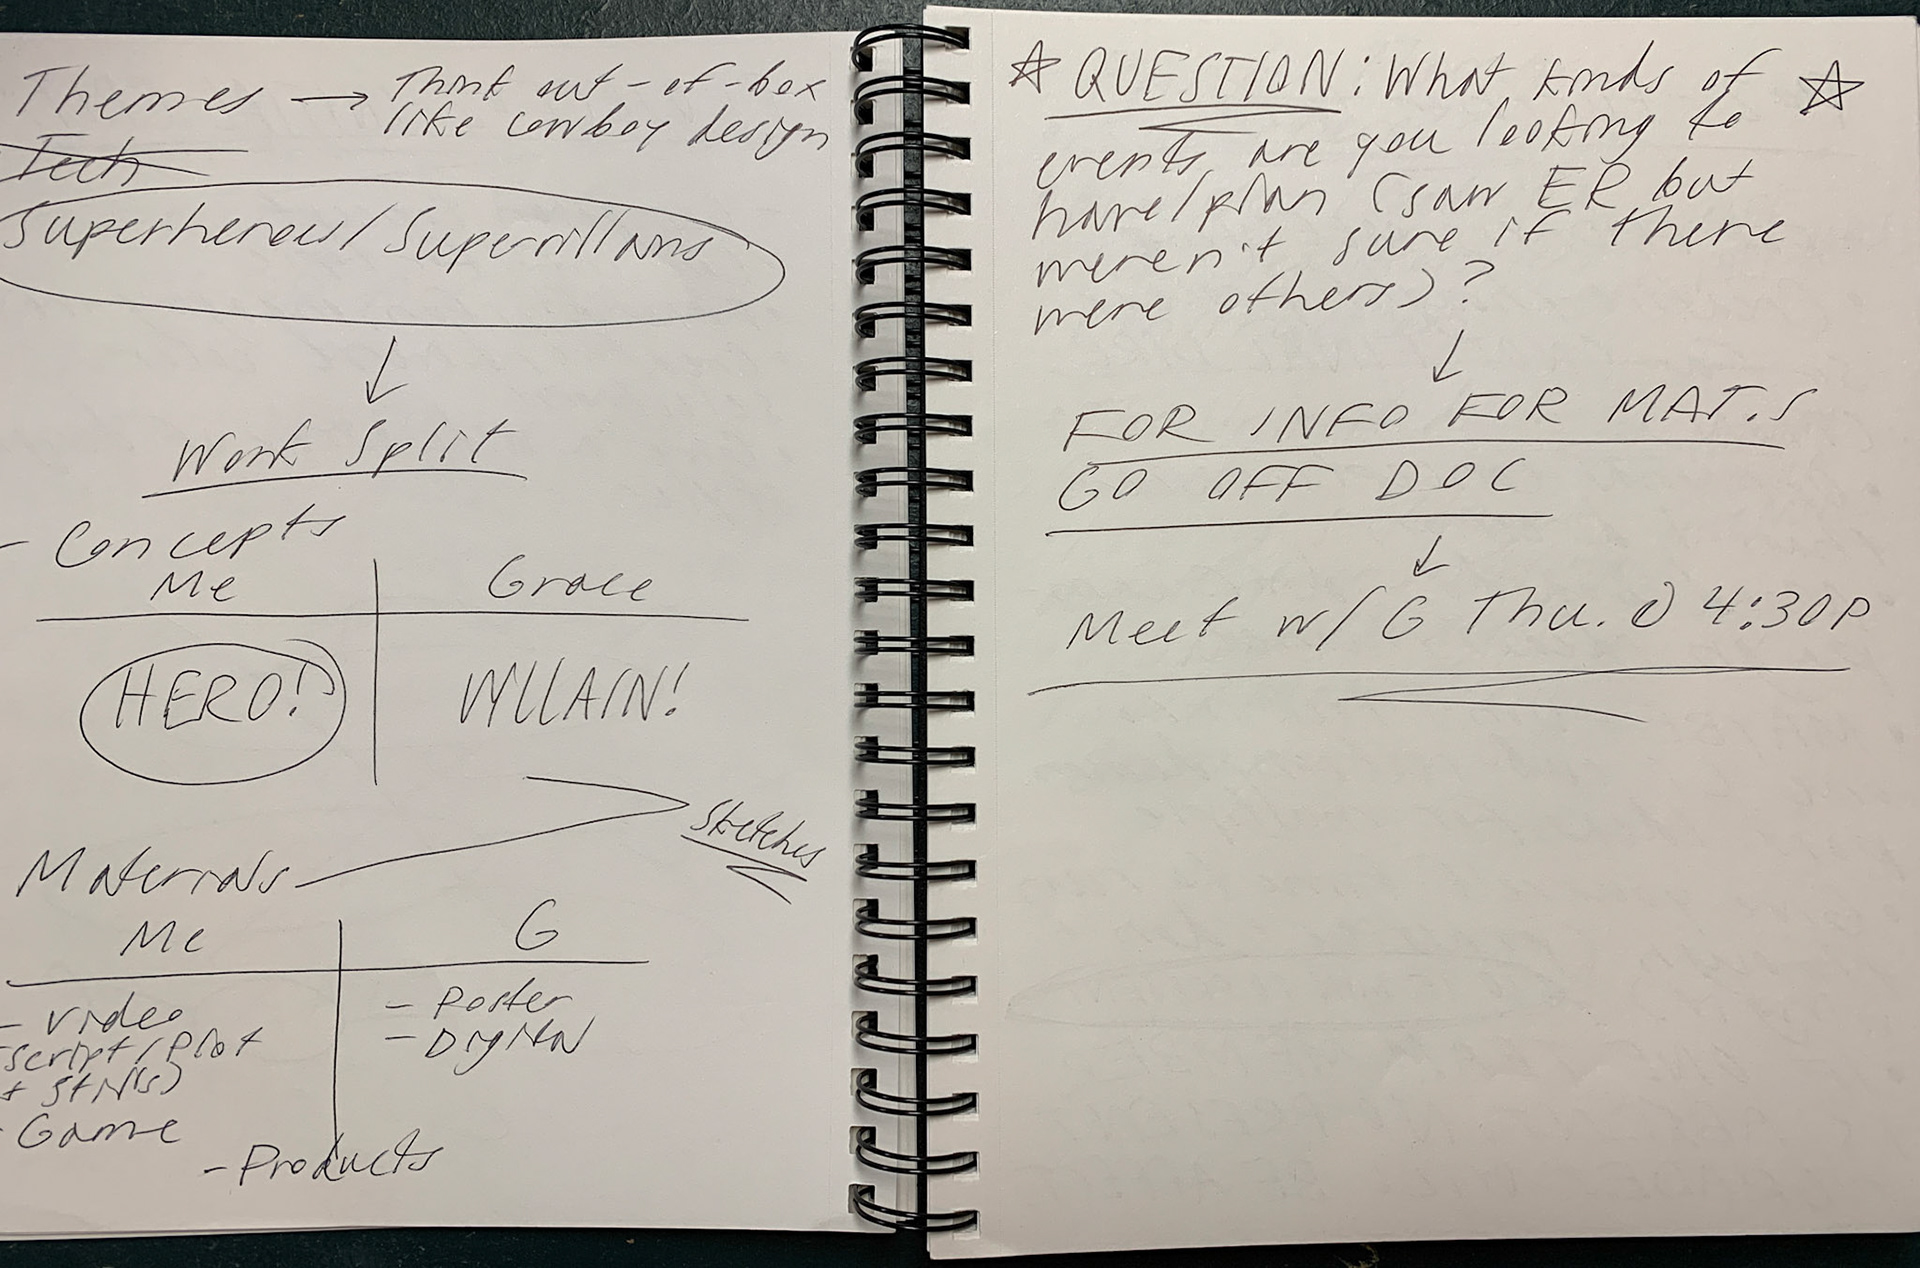 Themes → Think out-of-box
like cowboy design
Tech
Superheroes/Supervillans
↓
Work Split
- Concepts
Me Grace
HERO! VILLAIN!
Sketches
Materials
Me G
- Video - Poster
script/plot - Digital
+ stills)
- Game
- Products
☆ QUESTION: What kinds of ☆
events are you looking to
have/plan (saw ER but
weren't sure if there
were others)?
↓
FOR INFO FOR MAT.S
GO OFF DOC
↓
Meet w/ G Thu. @ 4:30P